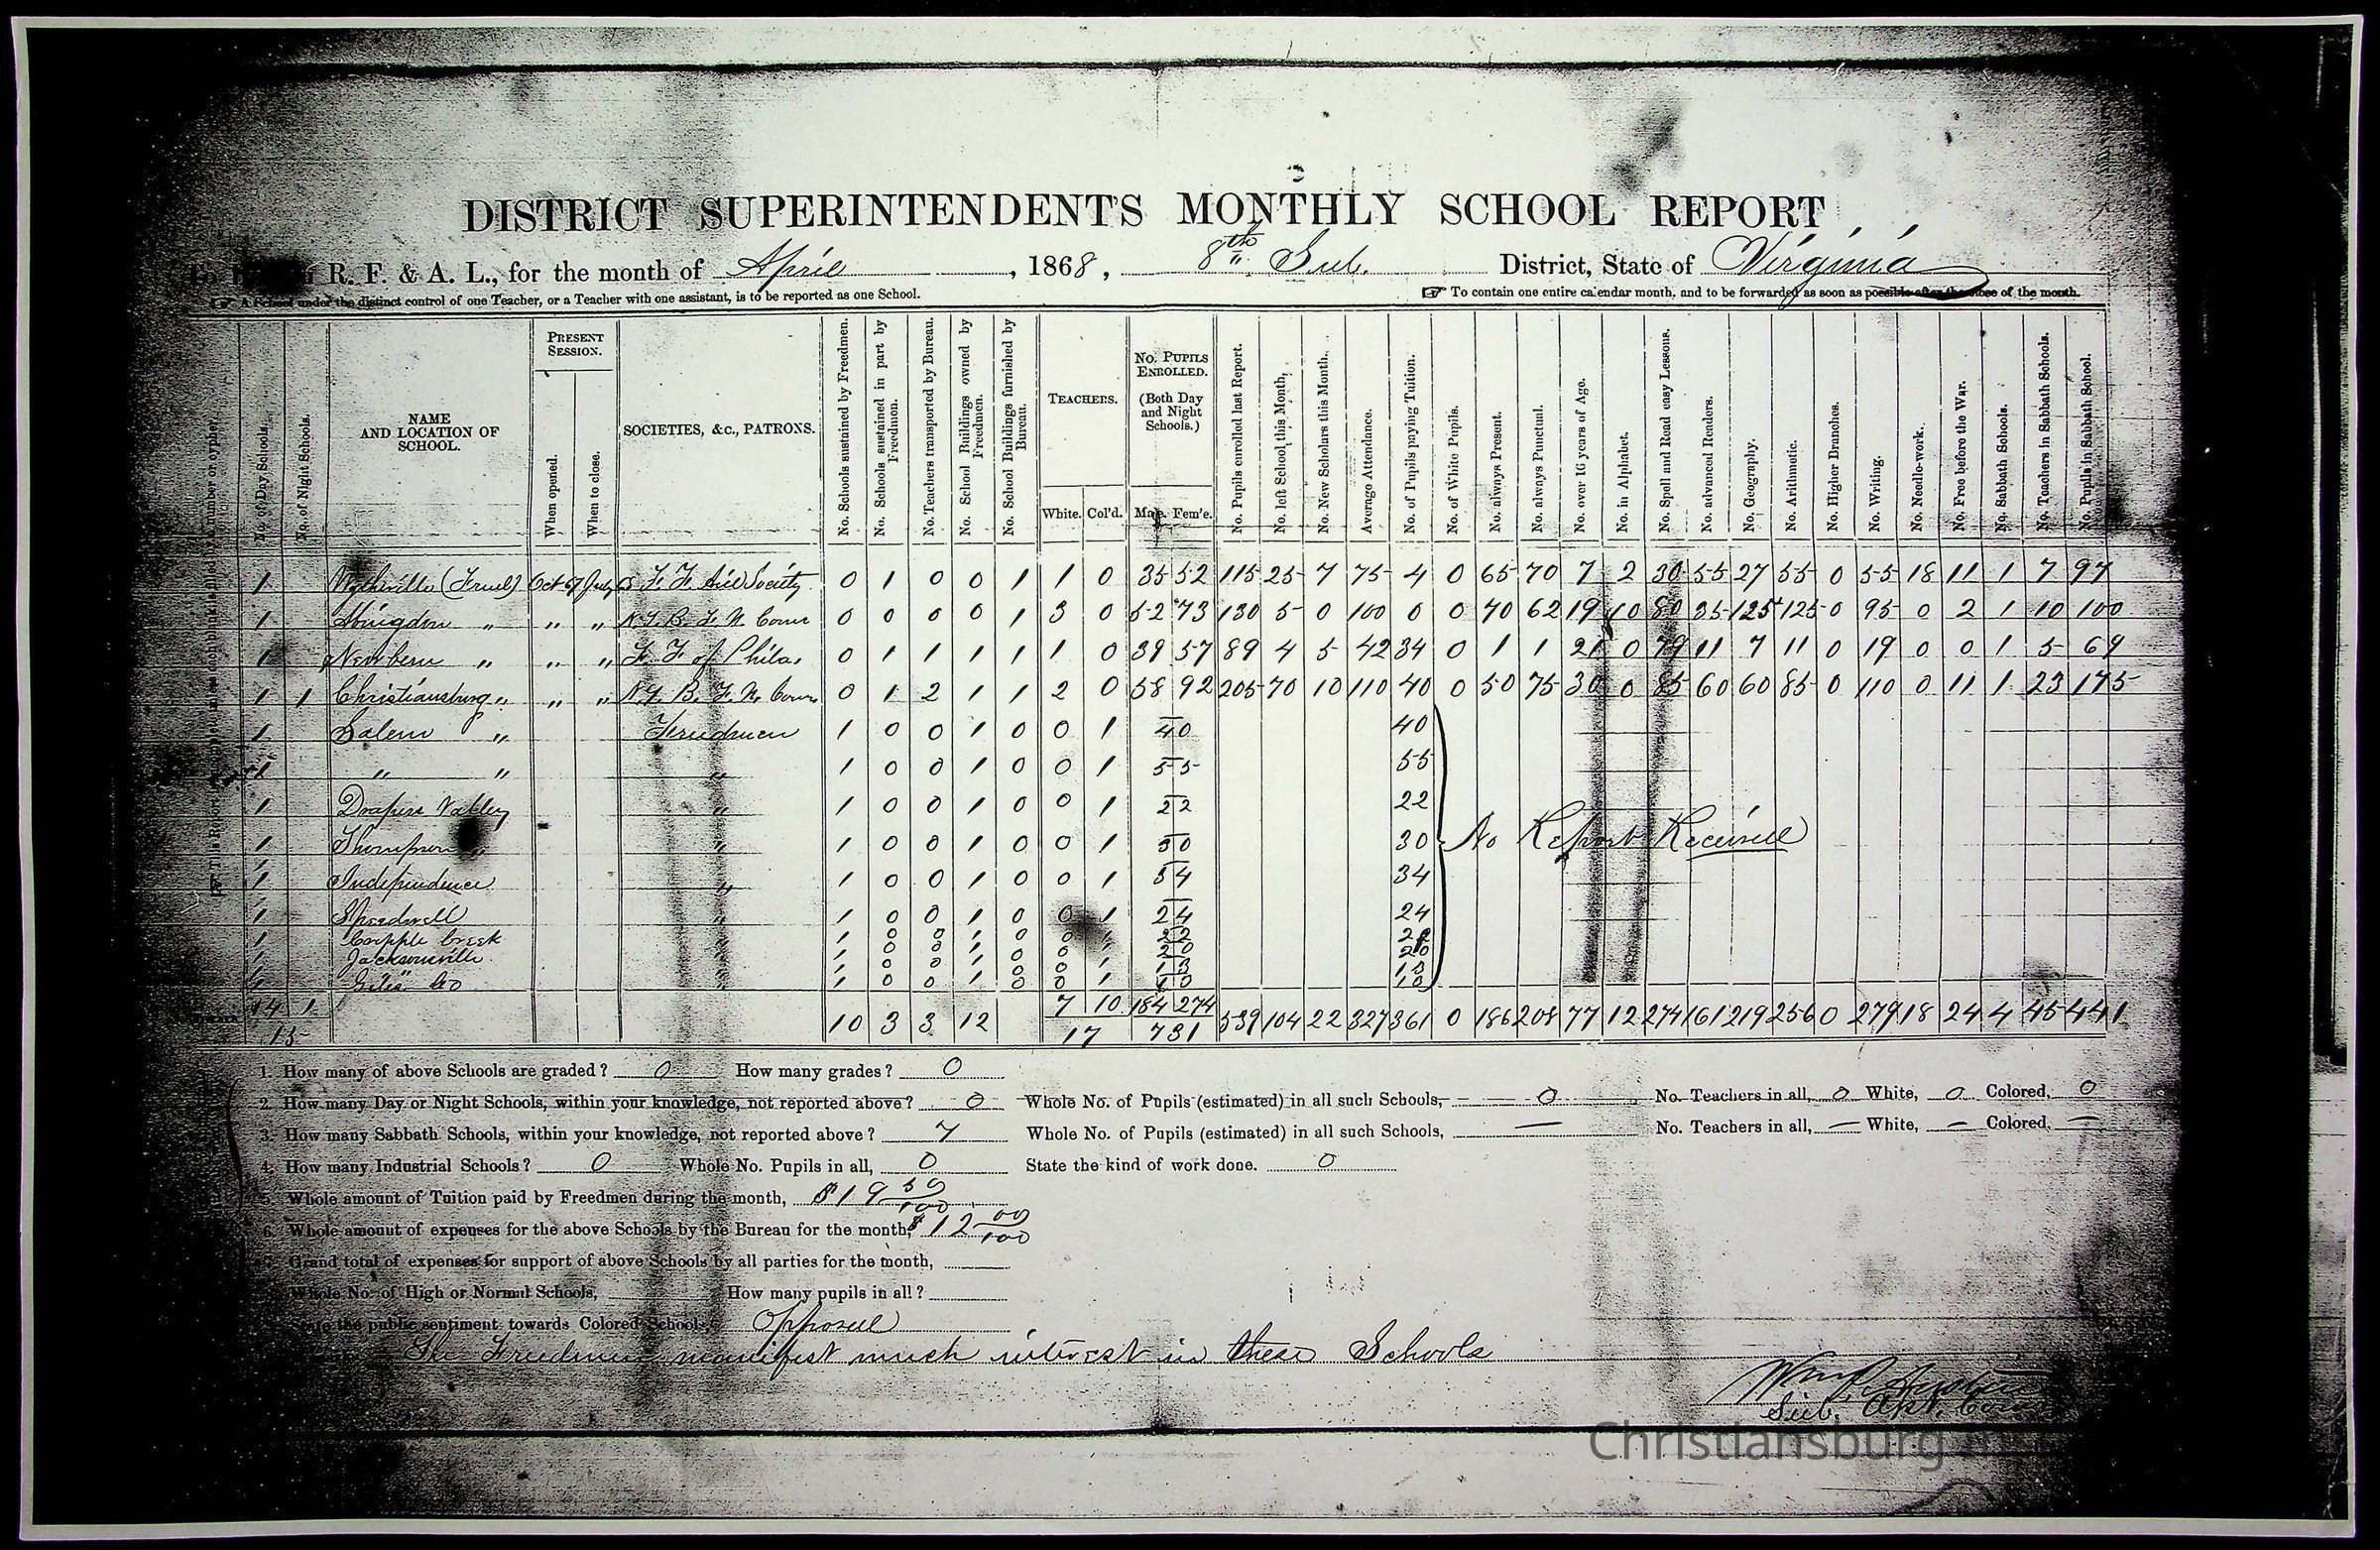 DISTRICT SUPERINTENDENT'S MONTHLY SCHOOL REPORT
R. F. & A. L., for the month of April, 1868, 8th Sub. District, State of Virginia
☞ A School under the distinct control of one Teacher, or a Teacher with one assistant, is to be reported as one School.
☞ To contain one entire calendar month, and to be forwarded as soon as possible after the close of the month.
No. of Day Schools. No. of Night Schools. NAME AND LOCATION OF SCHOOL. PRESENT SESSION. When opened. When to close. SOCIETIES, &c., PATRONS. No. Schools sustained by Freedmen. No. Schools sustained in part by Freedmen. No. Teachers transported by Bureau. No. School Buildings owned by Freedmen. No. School Buildings furnished by Bureau. TEACHERS. White. Col'd. No. PUPILS ENROLLED. (Both Day and Night Schools.) Male. Fem'e. No. Pupils enrolled last Report. No. left School this Month. No. New Scholars this Month. Average Attendance. No. of Pupils paying Tuition. No. of White Pupils. No. always Present. No. always Punctual. No. over 16 years of Age. No. in Alphabet. No. Spell and Read easy Lessons. No. advanced Readers. No. Geography. No. Arithmetic. No. Higher Branches. No. Writing. No. Needle-work. No. Free before the War. No. Sabbath Schools. No. Teachers in Sabbath Schools. No. Pupils in Sabbath School.
1 Wytheville Oct 67 July F. F. Aid Society 0 1 0 0 1 1 0 35 52 115 25 7 75 4 0 65 70 7 2 30 55 27 55 0 55 18 11 1 7 97
1 Abingdon " " " N.Y. B. F. U. Com 0 0 0 0 1 3 0 52 73 130 5 0 100 0 0 70 62 19 10 80 35 125 125 0 95 0 2 1 10 100
1 Newbern " " " F. F. of Phila. 0 1 1 1 1 1 0 39 57 89 4 5 42 34 0 1 1 21 0 79 11 7 11 0 19 0 0 1 5 69
1 1 Christiansburg " " " N.Y. B. F. U. Com 0 1 2 1 1 2 0 58 92 205 70 10 110 40 0 50 75 30 0 85 60 60 85 0 110 0 11 1 23 175
1 Salem " Freedmen 1 0 0 1 0 0 1 40 40
1 " " " 1 0 0 1 0 0 1 55 55
1 Drapers Valley " 1 0 0 1 0 0 1 22 22
1 Thompson " 1 0 0 1 0 0 1 30 30 No Report Received
1 Independence " 1 0 0 1 0 0 1 34 34
1 Speedwell " 1 0 0 1 0 0 1 24 24
1 Cripple Creek 1 0 0 1 0 0 1 22 22
1 Jacksonville 1 0 0 1 0 0 1 20 20
1 Giles Co 1 0 0 1 0 0 1
14 1 7 10 184 274
15 10 3 3 12 17 731 539 104 22 327 361 0 186 208 77 12 274 161 219 256 0 279 18 24 4 45 441
1. How many of above Schools are graded? 0 How many grades? 0
2. How many Day or Night Schools, within your knowledge, not reported above? 0 Whole No. of Pupils (estimated) in all such Schools, 0 No. Teachers in all, 0 White, 0 Colored, 0
3. How many Sabbath Schools, within your knowledge, not reported above? 7 Whole No. of Pupils (estimated) in all such Schools, — No. Teachers in all, — White, — Colored, —
4. How many Industrial Schools? 0 Whole No. Pupils in all, 0 State the kind of work done. 0
5. Whole amount of Tuition paid by Freedmen during the month, $19 50/100
6. Whole amount of expenses for the above Schools by the Bureau for the month, $12 00/100
Grand total of expenses for support of above Schools by all parties for the month,
Whole No. of High or Normal Schools, How many pupils in all?
State the public sentiment towards Colored Schools, Opposed
The Freedmen manifest much interest in these Schools
Sub. Asst. Com
Christiansburg